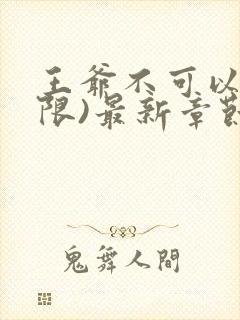 王爷不可以
限)最新章節
鬼舞人間